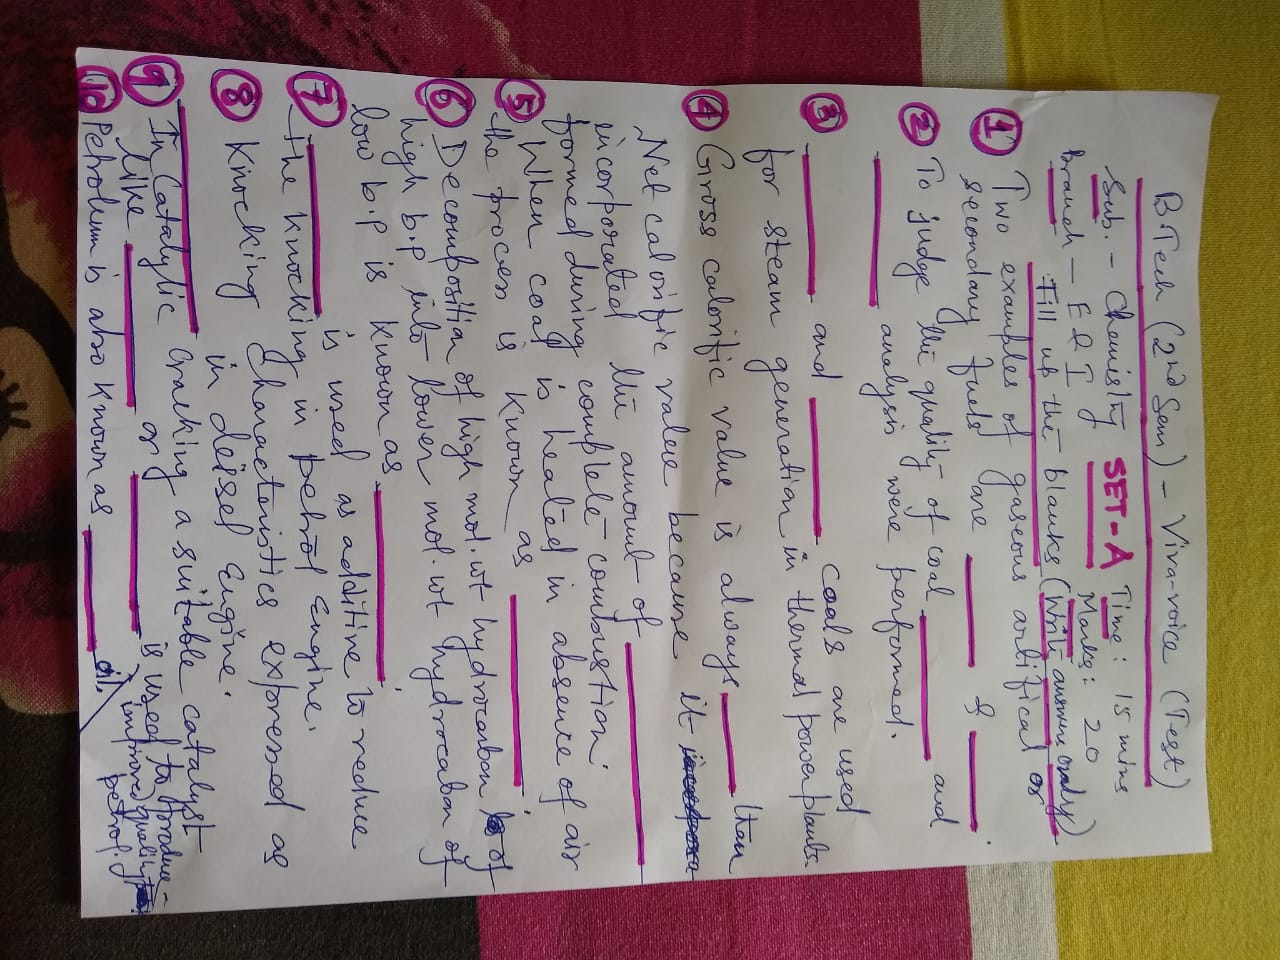 B.Tech (2nd Sem) - Viva-voice (Test)
Sub. - Chemistry SET-A Time: 15 mins
Branch - E&I Marks: 20
Fill up the blanks (Write answers only)
① Two examples of gaseous artifical or
secondary fuels are ______ & ______.
② To judge the quality of coal ______ and
______ analysis were performed.
③ ______ and ______ coals are used
for steam generation in thermal powerplants.
④ Gross calorific value is always ______ than
Net calorific value because it
incorporated the amount of ______
formed during complete combustion.
⑤ When coal is heated in absence of air
the process is known as ______.
⑥ Decomposition of high mol. wt hydrocarbon of
high b.p into lower mol. wt hydrocarbon of
low b.p is known as ______.
⑦ ______ is used as additive to reduce
the knocking in petrol engine.
⑧ Knocking characteristics expressed as
______ in deisel Engine.
⑨ In Catalytic Cracking a suitable catalyst
like ______ or ______ is used to produce
improve quality
petrol.
⑩ Petroleum is also known as ______ oil.